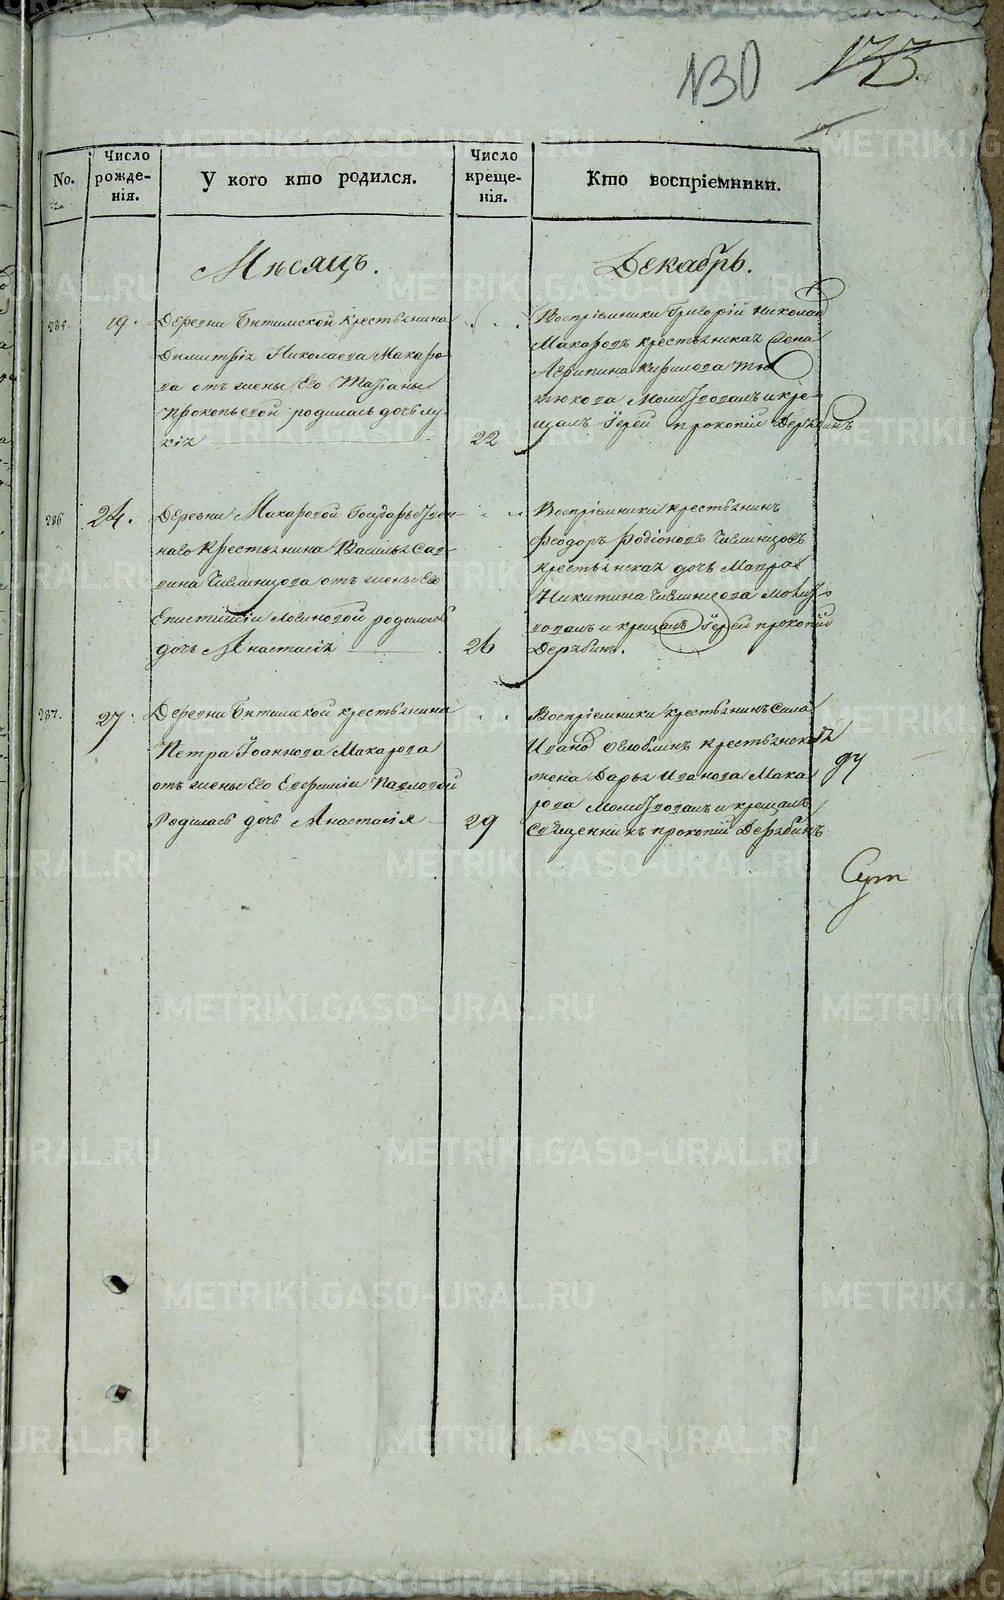 130 133.
No.
Число рожде-нія.
У кого кто родился.
Число креще-нія.
Кто воспріемники.
Мѣсяцъ.
Декабрь.
285.
19.
Деревни Битимской крестьянина
Димитрія Николаева Макаро
ва отъ жены его Татіаны
Прокопьевой родилась дочь Лу-
кія
22
Воспріемники Григорій Николаевъ
Макаровъ крестьянская жена
Агрипина Кирилова
Молитвовалъ и кре-
щалъ Іерей Прокопій Дерябинъ
286
24.
Деревни Макаровой Государствен-
наго Крестьянина Василья Сав-
вина отъ жены его
Епистиміи Логиновой родилась
дочь Анастасія
26
Воспріемники крестьянинъ
Феодоръ Родіоновъ
крестьянская дочь Мавра
Никитина Молит
вовалъ и крещалъ Іерей Прокопій
Дерябинъ.
287.
27.
Деревни Битимской крестьянина
Петра Іоаннова Макарова
отъ жены его Евфиміи Павловой
Родилась дочь Анастасія
29
Воспріемники крестьянинъ Сила
Ивановъ крестьянская
жена Дарья Иванова Мака
рова Молитвовалъ и крещалъ
Священникъ Прокопій Дерябинъ
METRIKI.GASO-URAL.RU